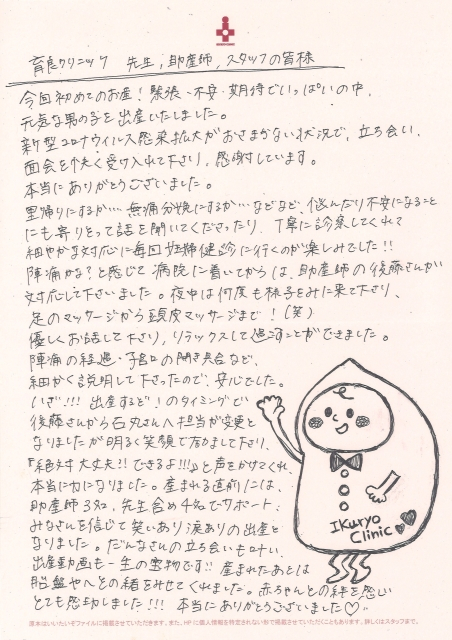 育良クリニック 先生,助産師,スタッフの皆様
今回初めてのお産!緊張・不安・期待でいっぱいの中、
元気な男の子を出産いたしました。
新型コロナウイルス感染拡大がおさまらない状況で、立ち会い、
面会を快く受け入れて下さり、感謝しています。
本当にありがとうございました。
里帰りにするか…無痛分娩にするか…などなど、悩んだり不安になること
にも寄りそって話を聞いてくださったり、丁寧に診察してくれて
細やかな対応に毎回妊婦健診に行くのが楽しみでした!!
陣痛かな?と感じて病院に着いてからは、助産師の後藤さんが
対応して下さいました。夜中は何度も様子をみに来て下さり、
足のマッサージから頭皮マッサージまで!(笑)
優しくお話して下さり、リラックスして過すことができました。
陣痛の経過・子宮口の開き具合など、
細かく説明して下さったので、安心でした。
いざ!!!出産するぞ!のタイミングで
後藤さんから石丸さんへ担当が変更と
なりましたが明るく笑顔で励まして下さり、
『絶対大丈夫?!できるよ!!!』と声をかけてくれ、
本当に力になりました。産まれる直前には、
助産師3名,先生含め4名でサポート!
みなさんを信じて笑いあり涙ありの出産と
なりました。だんなさんの立ち会いも叶い、
出産動画も一生の宝物です!!産まれたあとは
胎盤やへその緒をみせてくれました。赤ちゃんとの絆を感じ
とても感動しました!!!本当にありがとうございました♡
IKuryo
Clinic
原本はいいたいぞファイルに掲載させていただきます。また、HPに個人情報を特定されない形で掲載させていただくこともあります。詳しくはスタッフまで。